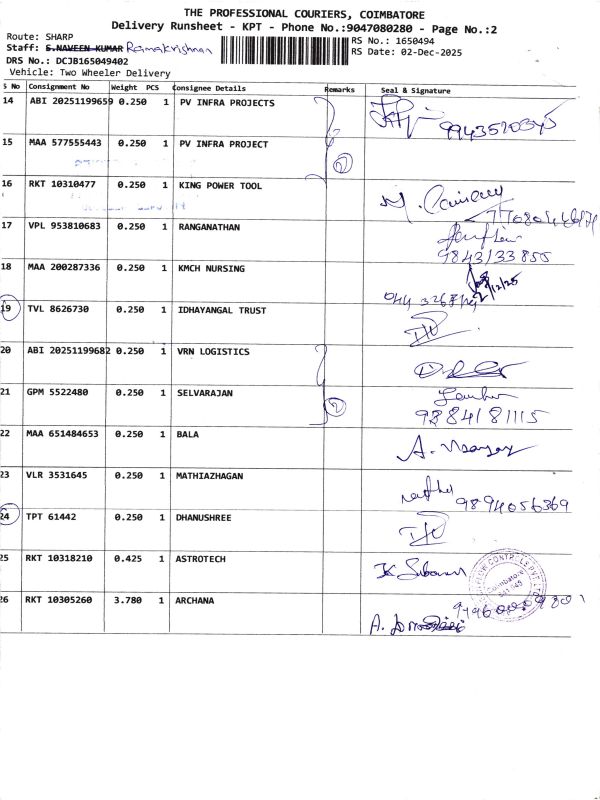 THE PROFESSIONAL COURIERS, COIMBATORE
Delivery Runsheet - KPT - Phone No.:9047080280 - Page No.:2
Route: SHARP
RS No.: 1650494
Staff: S.NAVEEN KUMAR Ramakrishnan
RS Date: 02-Dec-2025
DRS No.: DCJB165049402
Vehicle: Two Wheeler Delivery
S No Consignment No Weight PCS Consignee Details Remarks Seal & Signature
14 ABI 20251199659 0.250 1 PV INFRA PROJECTS
15 MAA 577555443 0.250 1 PV INFRA PROJECT
2
16 RKT 10310477 0.250 1 KING POWER TOOL
17 VPL 953810683 0.250 1 RANGANATHAN
9843133855
18 MAA 200287336 0.250 1 KMCH NURSING
2/12/25
19 TVL 8626730 0.250 1 IDHAYANGAL TRUST
20 ABI 20251199682 0.250 1 VRN LOGISTICS
21 GPM 5522480 0.250 1 SELVARAJAN
2
9884181115
22 MAA 651484653 0.250 1 BALA
23 VLR 3531645 0.250 1 MATHIAZHAGAN
9894056369
24 TPT 61442 0.250 1 DHANUSHREE
25 RKT 10318210 0.425 1 ASTROTECH
Coimbatore
26 RKT 10305260 3.780 1 ARCHANA